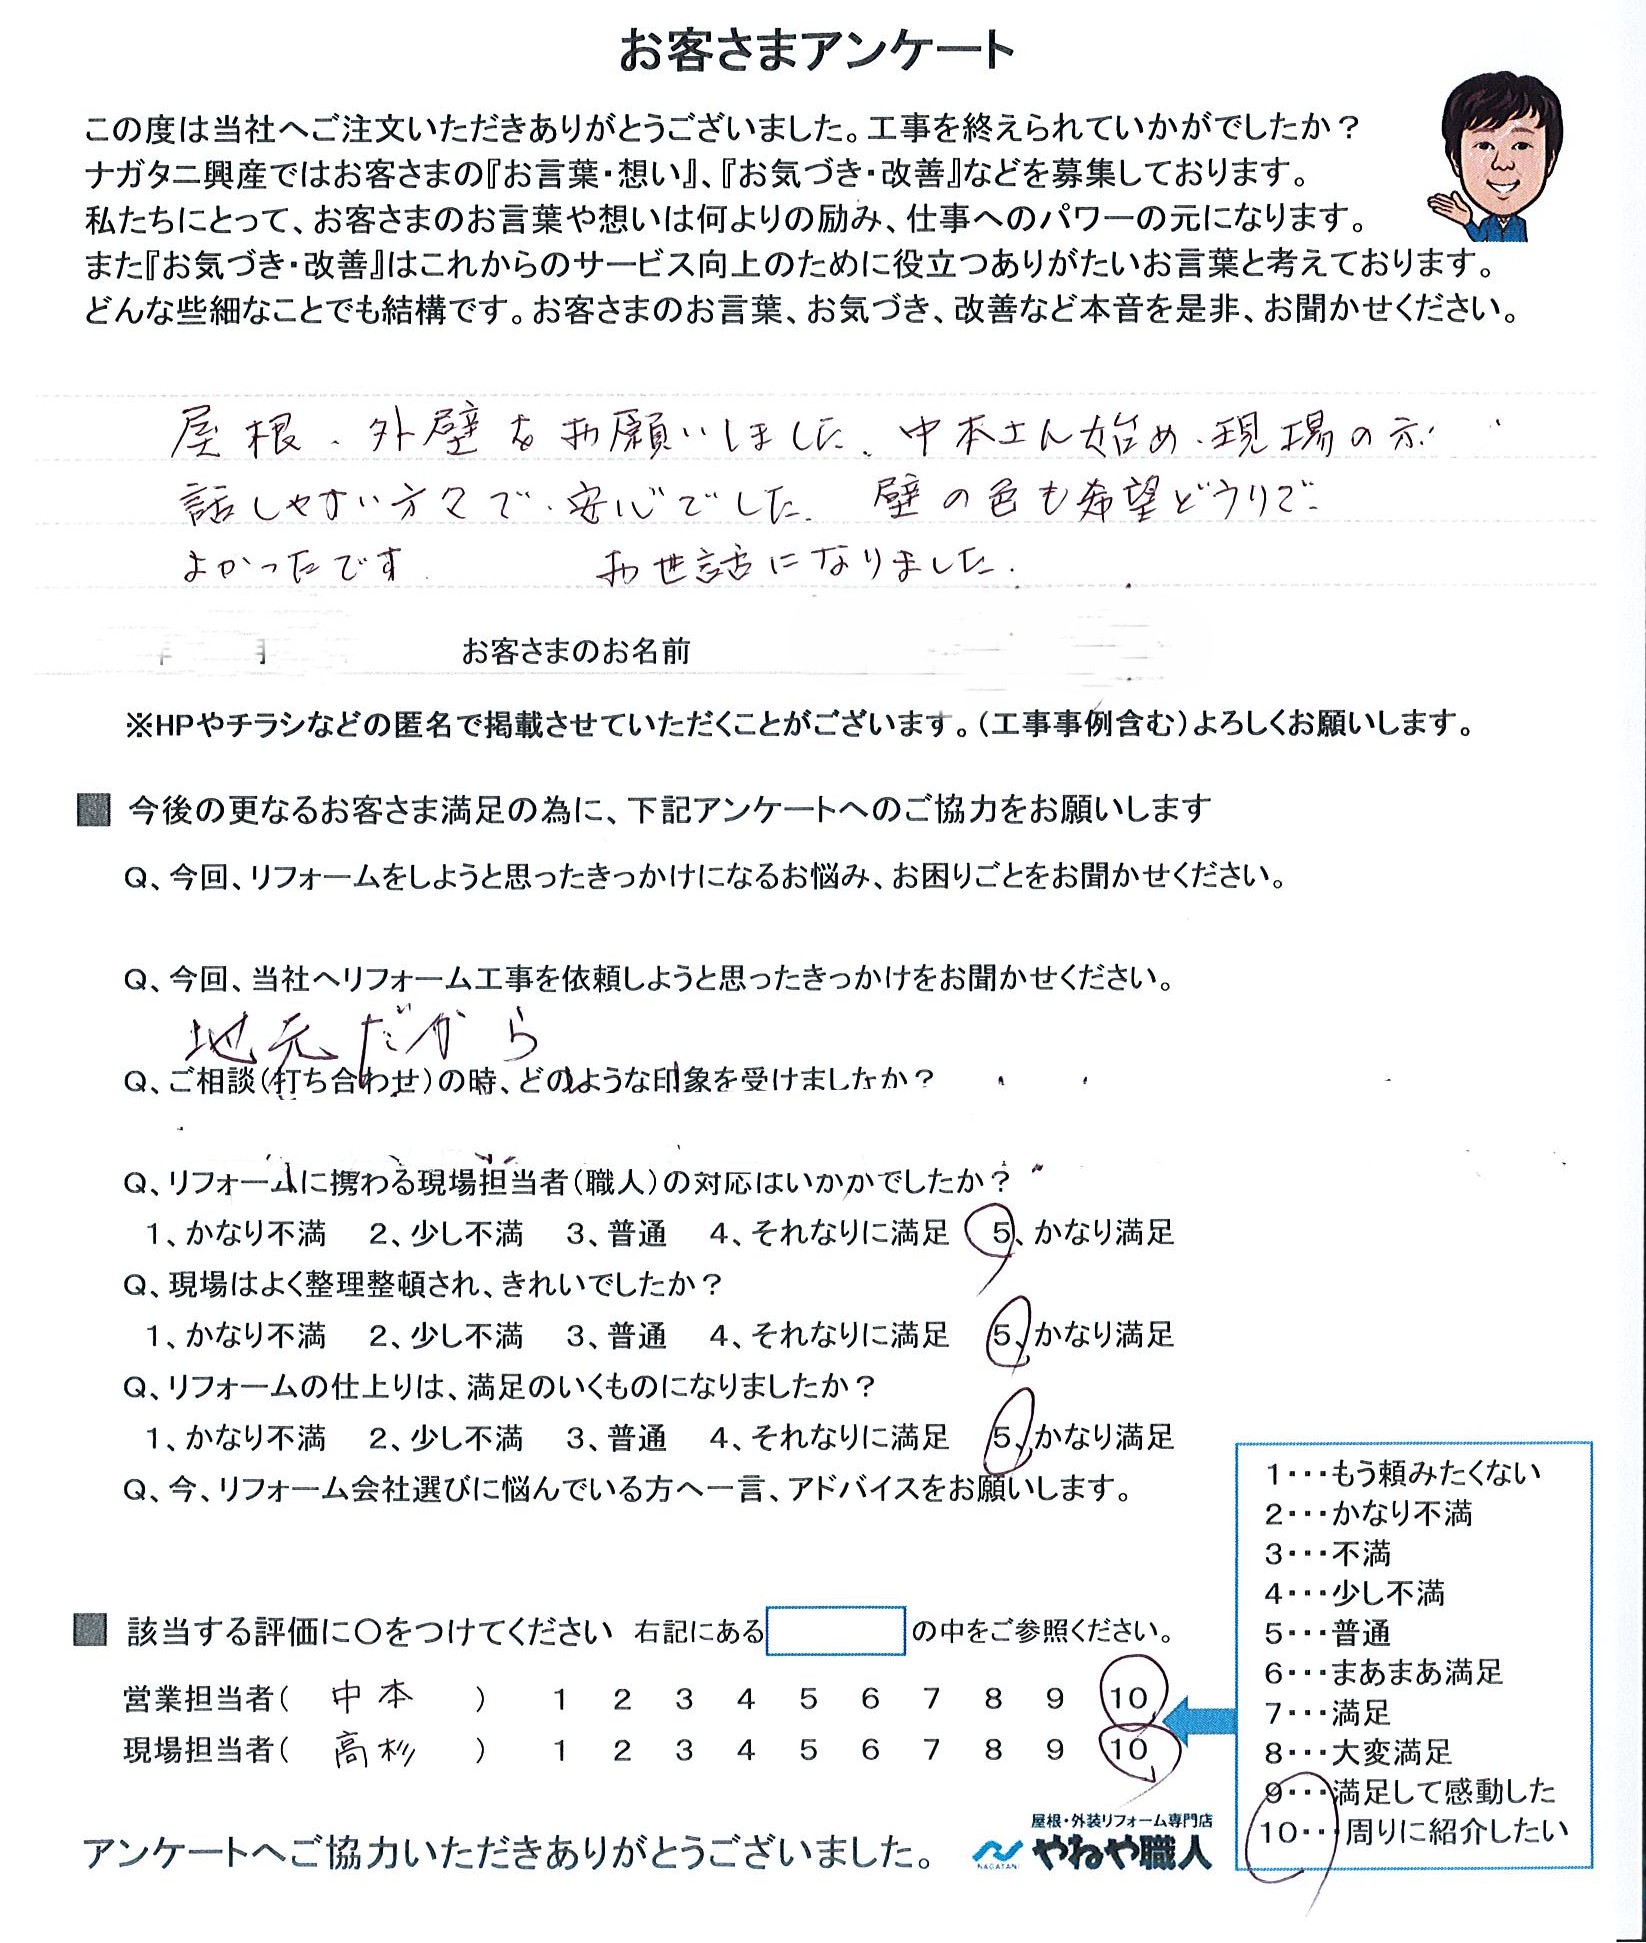 お客さまアンケート
この度は当社へご注文いただきありがとうございました。工事を終えられていかがでしたか？
ナガタニ興産ではお客さまの『お言葉・想い』、『お気づき・改善』などを募集しております。
私たちにとって、お客さまのお言葉や想いは何よりの励み、仕事へのパワーの元になります。
また『お気づき・改善』はこれからのサービス向上のために役立つありがたいお言葉と考えております。
どんな些細なことでも結構です。お客さまのお言葉、お気づき、改善など本音を是非、お聞かせください。
屋根、外壁をお願いしました。中本さん始め、現場の方
話しやすい方々で、安心でした。 壁の色も希望どうりで
よかったです。 お世話になりました。
年 月 お客さまのお名前
※HPやチラシなどの匿名で掲載させていただくことがございます。（工事事例含む）よろしくお願いします。
■ 今後の更なるお客さま満足の為に、下記アンケートへのご協力をお願いします
Q、今回、リフォームをしようと思ったきっかけになるお悩み、お困りごとをお聞かせください。
Q、今回、当社へリフォーム工事を依頼しようと思ったきっかけをお聞かせください。
地元だから
Q、ご相談（打ち合わせ）の時、どのような印象を受けましたか？
Q、リフォームに携わる現場担当者（職人）の対応はいかかでしたか？
1、かなり不満 2、少し不満 3、普通 4、それなりに満足 5、かなり満足
Q、現場はよく整理整頓され、きれいでしたか？
1、かなり不満 2、少し不満 3、普通 4、それなりに満足 5、かなり満足
Q、リフォームの仕上りは、満足のいくものになりましたか？
1、かなり不満 2、少し不満 3、普通 4、それなりに満足 5、かなり満足
Q、今、リフォーム会社選びに悩んでいる方へ一言、アドバイスをお願いします。
■ 該当する評価に〇をつけてください 右記にある の中をご参照ください。
営業担当者（ 中本 ） 1 2 3 4 5 6 7 8 9 10
現場担当者（ 高杉 ） 1 2 3 4 5 6 7 8 9 10
1・・・もう頼みたくない
2・・・かなり不満
3・・・不満
4・・・少し不満
5・・・普通
6・・・まあまあ満足
7・・・満足
8・・・大変満足
9・・・満足して感動した
10・・・周りに紹介したい
アンケートへご協力いただきありがとうございました。
屋根・外装リフォーム専門店
NAGATANI やねや職人